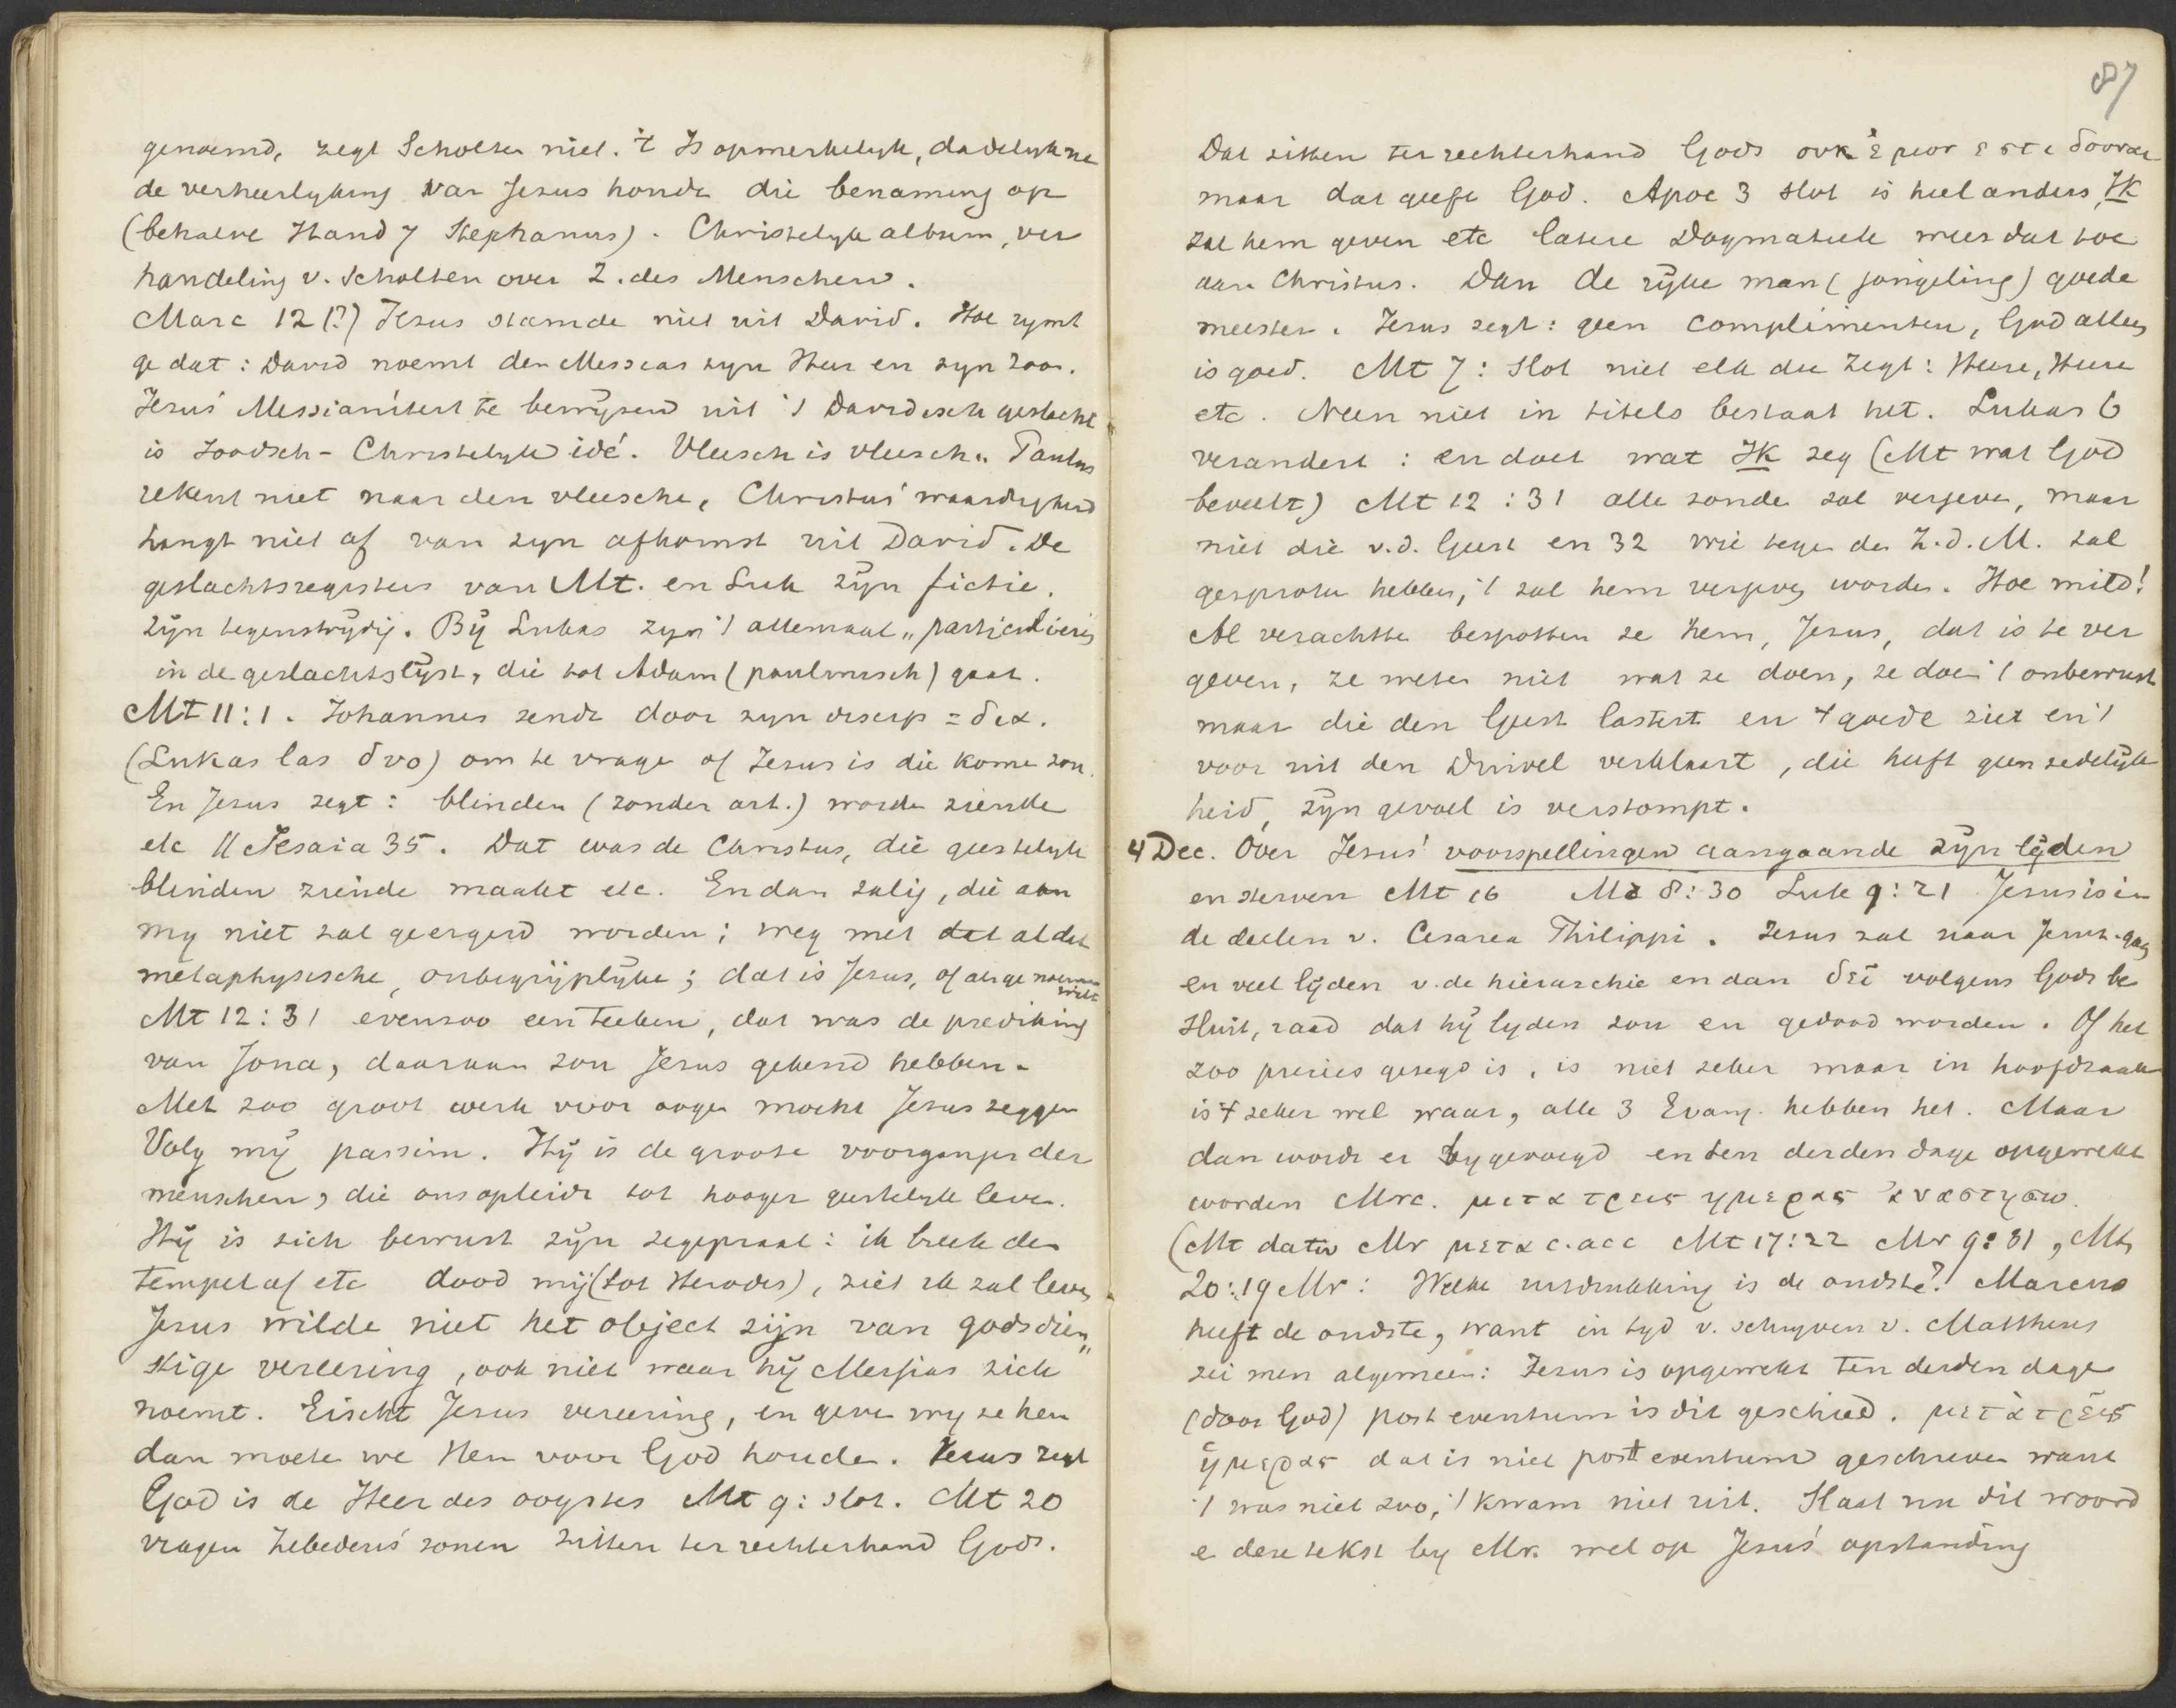 genoemd, zegt Scholten niet. 't Is opmerkelyk, dadelyk na
de verheerlyking van Jesus houdt die benaming op
(behalve Hand 7 Stephanus). Christelyk album, ver
handeling v. Scholten over Z. des Menschen.
Marc 12 (?) Jesus stamde niet uit David. Hoe rymt
ge dat: David noemt den Messias zyn Heer en zyn zoon.
Jesus' Messianiteit te bewijzen uit 't Davidisch geslacht
is Joodsch-Christelyk idé. Vleesch is vleesch. Paulus
rekent niet naar den vleesche, Christus' waardigheid
hangt niet af van zyn afkomst uit David. De
geslachtsregisters van Mt. en Luk zijn fictie.
zijn tegenstrijdig. Bij Lukas zyn 't allemaal „particulieren
in de geslachtslijst, die tot Adam (paulinisch) gaat.
Mt 11:1. Johannes zendt door zyn discip = δια.
(Lukas las δυο) om te vrage of Jesus is die kome zou.
En Jesus zegt: blinden (zonder art.) worden ziende
etc // Jesaia 35. Dat was de Christus, die geestelyk
blinden ziende maakt etc. En dan zalig, die aan
my niet zal geergerd worden; weg met dat al dat
metaphysische, onbegrijplijke; dat is Jesus, of als ge noemen wilt
Mt 12:31 evenzoo een teeken, dat was de prediking
van Jona, daaraan zou Jesus gekend hebben.
Met zoo groot werk voor ogen mocht Jesus zeggen
Volg mij passim. Hij is de groote voorganger der
menschen, die ons opleidt tot hooger geestelyk leven.
Hij is zich bewust zijn zegepraal: ik breek den
tempel af etc dood mij (tot Herodes), ziet ik zal leven
Jesus wilde niet het object zijn van godsdien„
stige vereering, ook niet waar hij Messias zich
noemt. Eischt Jesus vereering, en geven wy ze hem
dan moete we Hem voor God houde. Jesus zegt
God is de Heer des oogstes Mt 9: slot. Mt 20
vragen Zebedeus' zonen zitten ter rechterhand Gods.
87
Dat zitten ter rechterhand Gods ουκ ἐμον εστι δουναι
maar dat geeft God. Apoc 3 slot is heel anders, IK
zal hem geven etc latere Dogmatiek wees dat toe
aan Christus. Dan de rijke man (jongeling) goede
meester. Jesus zegt: geen complimenten, God alleen
is goed. Mt 7: slot niet elk die zegt: Heere, Heere
etc. Neen niet in titels bestaat het. Lukas 6
verandert: en doet wat IK zeg (Mt wat God
beveelt) Mt 12:31 alle zonde zal vergeven, maar
niet die v.d. Geest en 32 wie tegen den Z.d.M. zal
gesproken hebben, 't zal hem vergeven worden. Hoe mild!
Al verachtte bespotten ze hem, Jesus, dat is te ver
geven, ze weten niet wat ze doen, ze doen 't onbewust
maar die den Geest lastert en 't goede ziet en 't
voor uit den Duivel verklaart, die heeft geen zedelijk
heid, zijn gevoel is verstompt.
4 Dec. Over Jesus' voorspellingen aangaande zijn lijden
en sterven Mt 16 Mc 8:30 Luk 9:21 Jesus is in
de deelen v. Cesarea Philippi. Jesus zal naar Jeruz. gaan
en veel lijden v. de hierarchie en dan δεῖ volgens Gods be
sluit, raad dat hij lyden zou en gedood worden. Of het
zoo precies gezegd is, is niet zeker maar in hoofdzaak
is 't zeker wel waar, alle 3 Evang. hebben het. Maar
dan wordt er bygevoegd en ten derden dage opgewekt
worden Mrc. μετα τρεις ημερας ἀναστησω.
(Mt dativ Mr μετα c. acc Mt 17:22 Mr 9:31, Mt
20:19 Mr: Welke uitdrukking is de oudste? Marcus
heeft de oudste, want in tyd v. schryven v. Mattheus
zei men algemeen: Jesus is opgewekt ten derden dage
(door God) post eventum is dit geschied. μετὰ τρεῖς
ἡμερας dat is niet post eventum geschreven want
't was niet zoo, 't kwam niet uit. Slaat nu dit woord
e deze tekst by Mr. wel op Jesus' opstanding